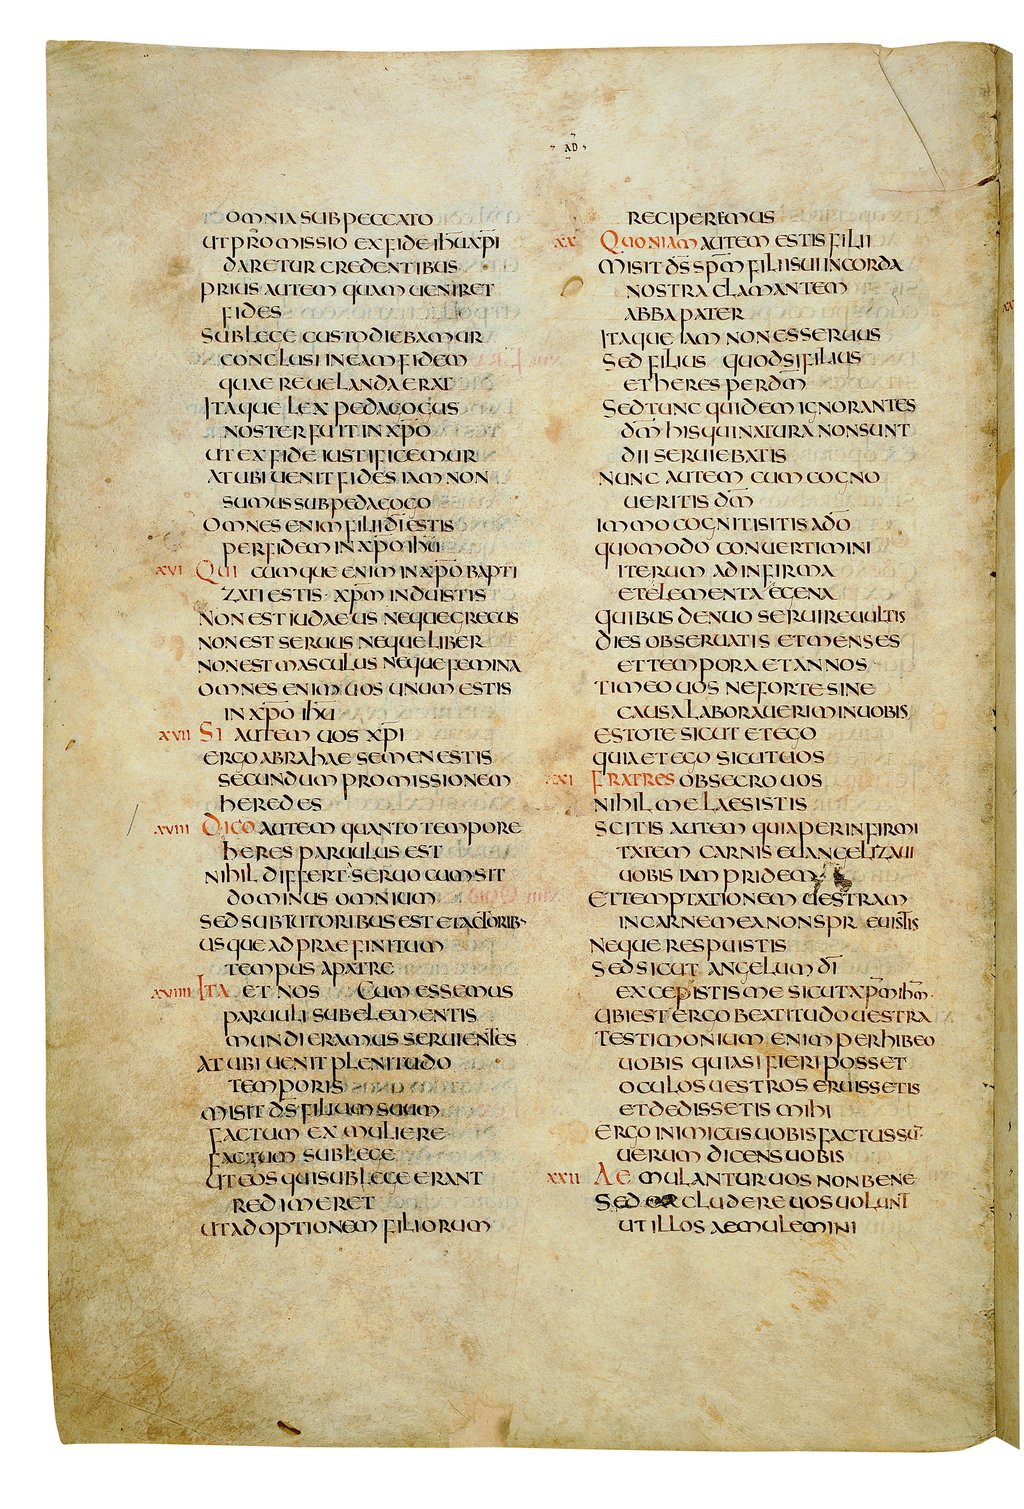 AD
OMNIA SUB PECCATO
UT PROMISSIO EX FIDE IHU XPI
DARETUR CREDENTIBUS
PRIUS AUTEM QUAM UENIRET
FIDES
SUB LEGE CUSTODIEBAMUR
CONCLUSI IN EAM FIDEM
QUAE REUELANDA ERAT
ITAQUE LEX PEDAGOGUS
NOSTER FUIT IN XPO
UT EX FIDE IUSTIFICEMUR
AT UBI UENIT FIDES IAM NON
SUMUS SUB PEDAGOGO
OMNES ENIM FILII DI ESTIS
PER FIDEM IN XPO IHU
XVI QUI CUMQUE ENIM IN XPO BAPTI
ZATI ESTIS XPM INDUISTIS
NON EST IUDAEUS NEQUE GRECUS
NON EST SERUUS NEQUE LIBER
NON EST MASCULUS NEQUE FEMINA
OMNES ENIM UOS UNUM ESTIS
IN XPO IHU
XVII SI AUTEM UOS XPI
ERGO ABRAHAE SEMEN ESTIS
SECUNDUM PROMISSIONEM
HEREDES
XVIII DICO AUTEM QUANTO TEMPORE
HERES PARUULUS EST
NIHIL DIFFERT SERUO CUM SIT
DOMINUS OMNIUM
SED SUB TUTORIBUS EST ET ACTORIB
USQUE AD PRAEFINITUM
TEMPUS A PATRE
XVIIII ITA ET NOS CUM ESSEMUS
PARUULI SUB ELEMENTIS
MUNDI ERAMUS SERUIENTES
AT UBI UENIT PLENITUDO
TEMPORIS
MISIT DS FILIUM SUUM
FACTUM EX MULIERE
FACTUM SUB LEGE
UT EOS QUI SUB LEGE ERANT
REDIMERET
UT ADOPTIONEM FILIORUM
RECIPEREMUS
XX QUONIAM AUTEM ESTIS FILII
MISIT DS SPM FILII SUI IN CORDA
NOSTRA CLAMANTEM
ABBA PATER
ITAQUE IAM NON ES SERUUS
SED FILIUS QUOD SI FILIUS
ET HERES PER DM
SED TUNC QUIDEM IGNORANTES
DM HIS QUI NATURA NON SUNT
DII SERUIEBATIS
NUNC AUTEM CUM COGNO
UERITIS DM
IMMO COGNITI SITIS A DO
QUOMODO CONUERTIMINI
ITERUM AD INFIRMA
ET ELEMENTA EGENA
QUIBUS DENUO SERUIRE UULTIS
DIES OBSERUATIS ET MENSES
ET TEMPORA ET ANNOS
TIMEO UOS NE FORTE SINE
CAUSA LABORAUERIM IN UOBIS
ESTOTE SICUT ET EGO
QUIA ET EGO SICUT UOS
XXI FRATRES OBSECRO UOS
NIHIL ME LAESISTIS
SCITIS AUTEM QUIA PER INFIRMI
TATEM CARNIS EUANGELIZAUI
UOBIS IAM PRIDEM
ET TEMPTATIONEM UESTRAM
IN CARNE MEA NON SPREUISTIS
NEQUE RESPUISTIS
SED SICUT ANGELUM DI
EXCEPISTIS ME SICUT XPM IHM
UBI EST ERGO BEATITUDO UESTRA
TESTIMONIUM ENIM PERHIBEO
UOBIS QUIA SI FIERI POSSET
OCULOS UESTROS ERUISSETIS
ET DEDISSETIS MIHI
ERGO INIMICUS UOBIS FACTUS SU
UERUM DICENS UOBIS
XXII AEMULANTUR UOS NON BENE
SED EXCLUDERE UOS UOLUNT
UT ILLOS AEMULEMINI